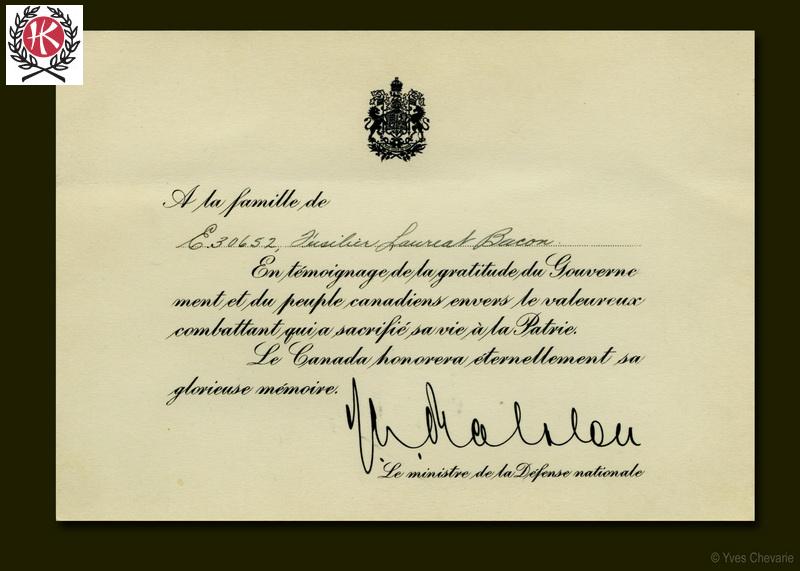 HK
A la famille de
E.30652, Fusilier, Laureat Bacon
En témoignage de la gratitude du Gouverne
ment et du peuple canadiens envers le valeureux
combattant qui a sacrifié sa vie à la Patrie.
Le Canada honorera éternellement sa
glorieuse mémoire.
Le ministre de la Défense nationale
© Yves Chevarie